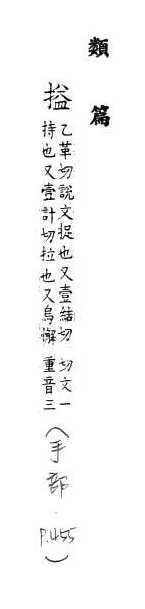 類篇
搤
乙革切說文捉也又壹結切
持也又壹計切拉也又烏懈
切文一
重音三
(手部.P.455)